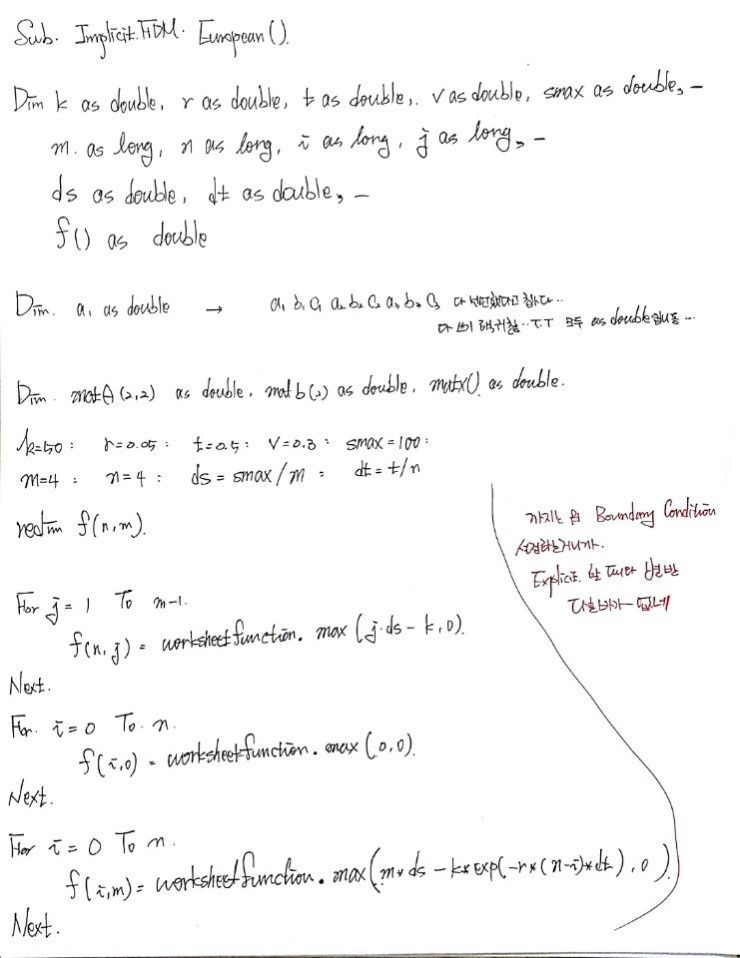 Sub. Implicit.FDM. European().
Dim k as double, r as double, t as double,. v as double, smax as double, _
m. as long, n as long, i as long, j as long, _
ds as double, dt as double, _
f() as double
Dim. a1 as double → a1 b1 c1 a2 b2 c2 a3 b3 c3 다 선언했다고 칩시다..
다 쓰기 귀찮..T.T 모두 as double 입니둥...
Dim. matA(2,2) as double. mat b(2) as double. matx() as double.
k=50 : r=0.05 : t=0.5 : v=0.3 : smax=100 :
m=4 : n=4 : ds = smax/m : dt = t/n
redim f(n,m).
For j = 1 To m-1.
f(n,j) = worksheetfunction. max (j·ds - k, 0).
Next.
For. i=0 To. n.
f(i,0) = worksheetfunction. max (0,0).
Next.
For i = 0 To n.
f(i,m) = worksheetfunction. max(m*ds - k*exp(-r*(n-i)*dt), 0)
Next.
까지는 Boundary Condition
Explicit